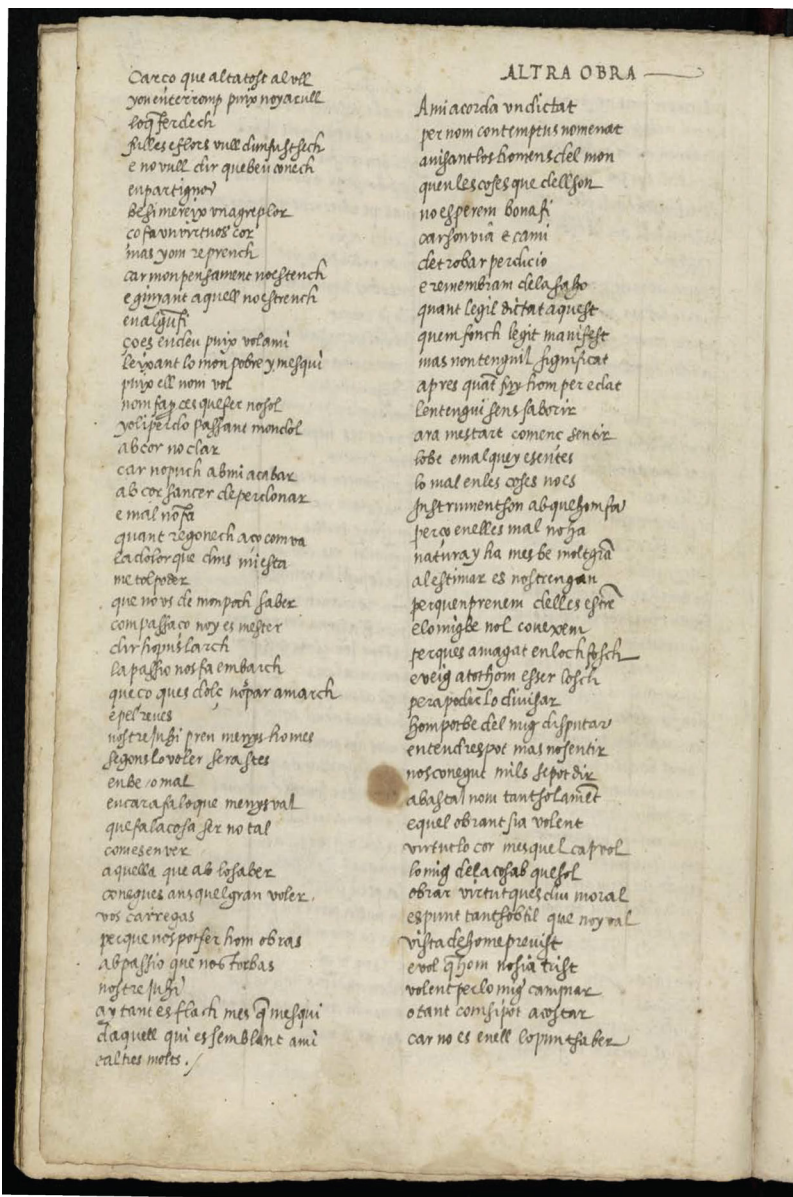 Car ço que altatost al vll
yon enterromp puix noy acull
loq̃ ferdech
fulles e flors vull dun fust sech
e no vull dir que beu conech
en part ignor
be si mereix vn agre plor
cosa vn virtuos cor
mas yom reprench
car mon pensament no estench
e giyant aquell no estrench
en algũ fi
ço es en deu puix vol ami
leixant lo mon pobre y mesqui
puix ell nom vol
nom faç ces que fer nosol
yoli perdo passant mon dol
ab cor no clar
car no puch ab mi acabar
ab cor sancer de perdonar
e mal nõ fa
quant regonech aço com va
la dolor que dins mi esta
me tol poder
que no vs de mon poch saber
com passaço noy es mester
dir ho pus larch
la passio nos fa embarch
que ço ques dolç nõs par amarch
e pel reues
nostre juhi pren menys homes
segons lo voler sera stes
en be / o mal
encara fa lo que menys val
que fa la cosa ser no tal
com es en ver
aquella que ab lo saber
conegues ans quel gran voler.
vos carregas
perque nos pot fer hom obras
ab passio que nos torbas
nostre juhi
ay tant es flach mes q̃ mesqui
daquell qui es semblant ami
ealties molts. /
ALTRA OBRA
Ami acorda vn dictat
per nom contemptus nomenat
auisant los homens del mon
quen les coses que dell son
no esperem bona fi
car son via e cami
de trobar perdicio
e remembram de la saho
quant legil dictat aquest
quem fonch legit manifest
mas non tenguil significat
apres quãt fuy hom per edat
lentengui sens saborir
ara mestart començ sentir
lo be e mal que y es entes
lo mal en les coses no es
Instrument son ab que hom fa
perço en elles mal no ha
natura y ha mes be molt grã
al estimar es nostre engan
perquen prenem delles estrẽ
e lo mig be nol conexem
perques amagat en loch fosch
e veig a tot hom esser losch
pera poder lo diuisar
hom pot be del mig disputar
entendres pot mas no sentir
nos conegut mils se pot dir
abastal nom tant solamẽt
e quel obrant sia volent
virtut lo cor mes quel cap vol
lo mig de la cosab que sol
obrar virtut ques diu moral
es punt tant sobtil que noy val
vista de home preuist
e vol q̃ hom no sia trist
volent per lo mig caminar
o tant com si pot acostar
car no es en ell lo punt saber